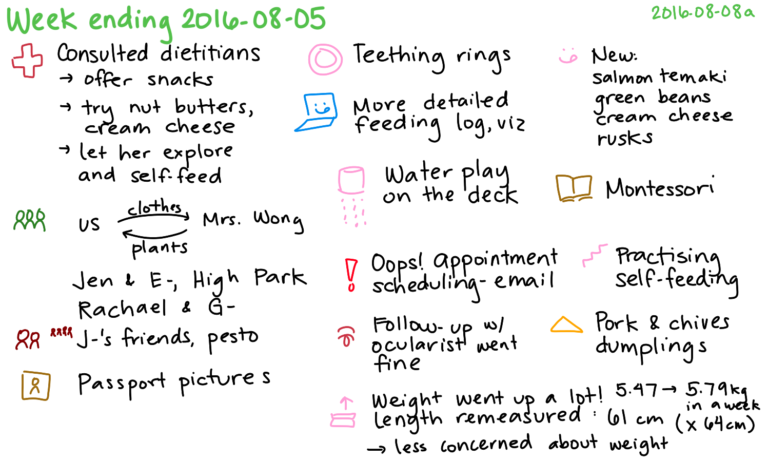 Week ending 2016-08-05
2016-08-08a
Consulted dietitians
→ offer snacks
→ try nut butters,
cream cheese
→ let her explore
and self-feed
us clothes Mrs. Wong
plants
Jen & E-, High Park
Rachael & G-
J-'s friends, pesto
Passport pictures
Teething rings
More detailed
feeding log, viz
Water play
on the deck
Oops! Appointment
scheduling-email
Follow-up w/
ocularist went
fine
Weight went up a lot! 5.47 → 5.79kg
in a week
length remeasured: 61 cm (x 64cm)
→ less concerned about weight
New:
salmon temaki
green beans
cream cheese
rusks
Montessori
Practising
self-feeding
Pork & chives
dumplings